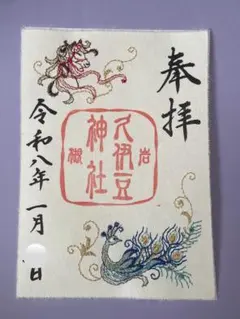 奉拝
岩槻
久伊豆
神社
令和八年一月 日